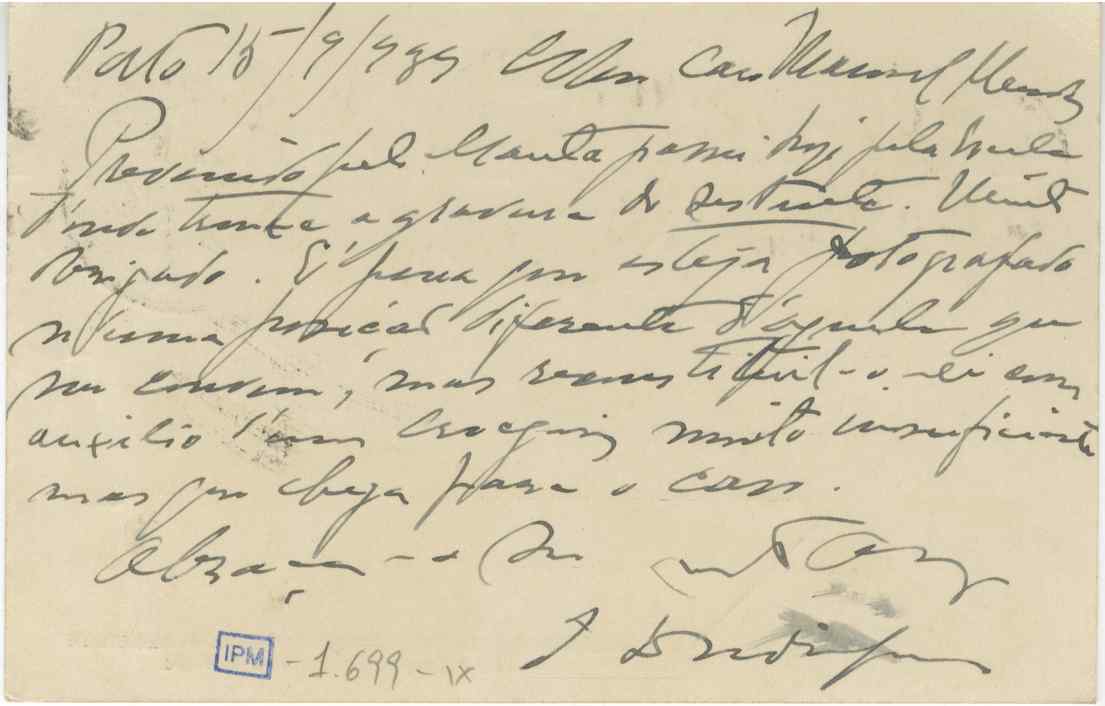 Porto 15/9/939 Meu Caro Manuel Mendes
Prevenido pelo Manta passei hoje pela Escola
d'onde trouxe a gravura do sextante. Muito
obrigado. É pena que esteja fotografado
n'uma posição diferente d'aquela que
me convem, mas reconstitui-l-o-ei com
auxilio d'um croquis muito insuficiente
mas que chega para o caso.
Abraça-o seu
IPM -1.699-IX